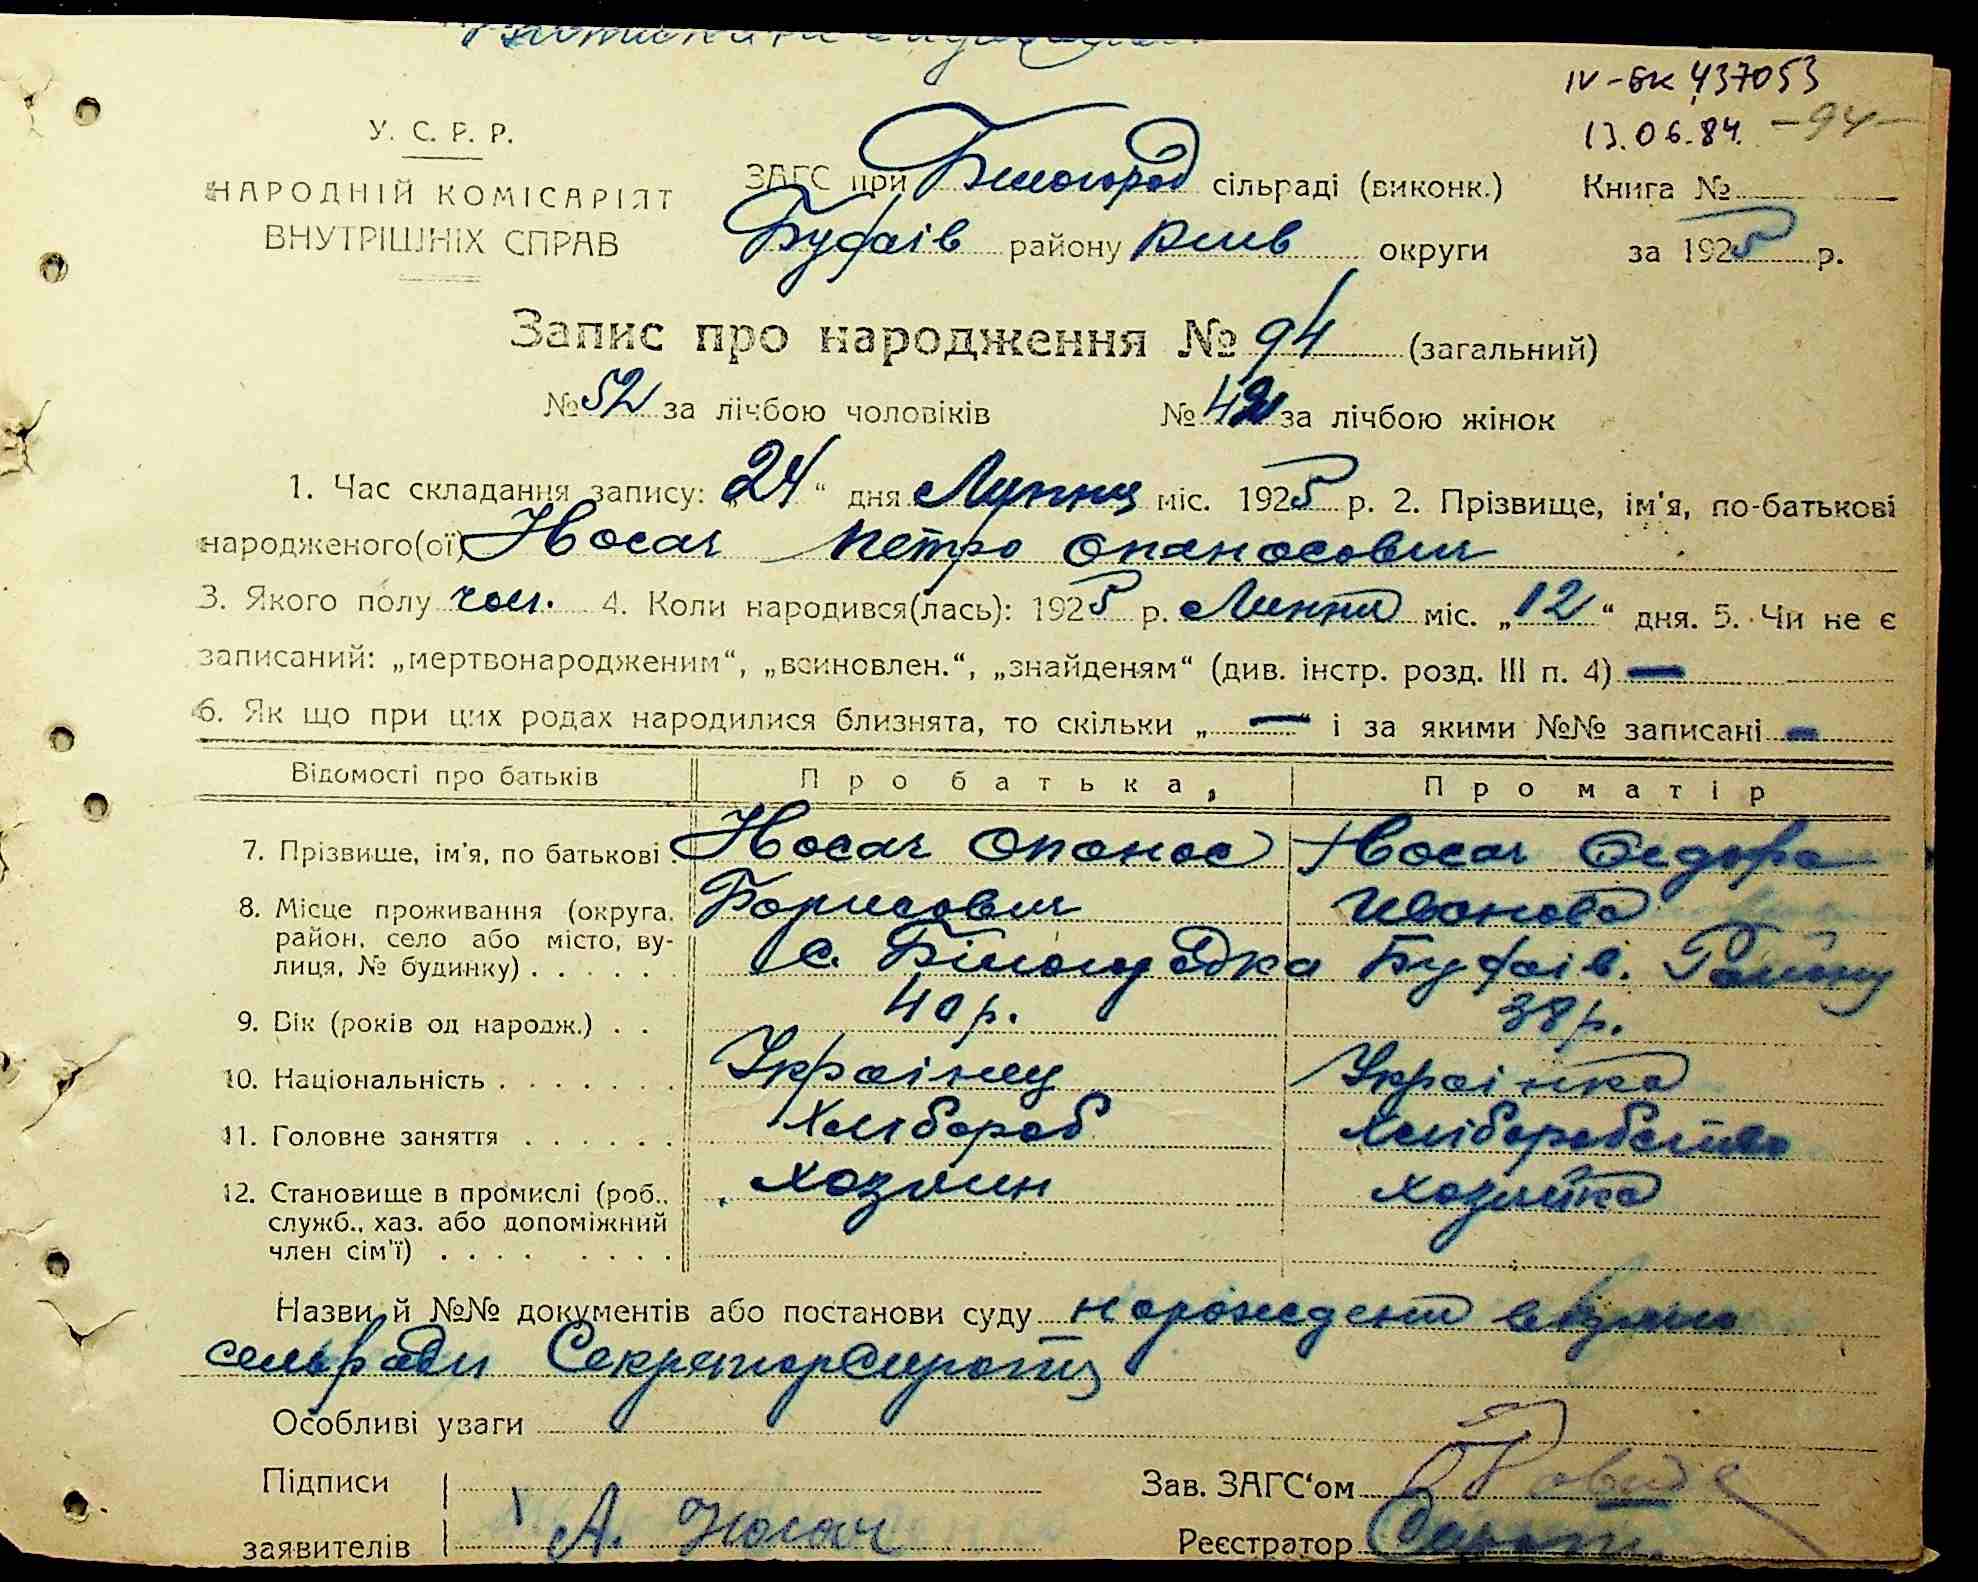 IV-БК 437053
13.06.84. -94-
У. С. Р. Р.
НАРОДНІЙ КОМІСАРІЯТ
ВНУТРІШНІХ СПРАВ
ЗАГС при Білогород сільраді (виконк.) Книга №
Будаів району Київ округи за 1925 р.
Запис про народження № 94 (загальний)
№ 52 за лічбою чоловіків № 42 за лічбою жінок
1. Час складання запису: „24“ дня Липня міс. 1925 р. 2. Прізвище, ім'я, по-батькові
народженого(ої) Носач Петро Опанасович
3. Якого полу чол. 4. Коли народився(лась): 1925 р. Липня міс. „12“ дня. 5. Чи не є
записаний: „мертвонародженим“, „всиновлен.“, „знайденям“ (див. інстр. розд. III п. 4) —
6. Як що при цих родах народилися близнята, то скільки „—“ і за якими №№ записані —
Відомості про батьків Про батька, Про матір
7. Прізвише, ім'я, по батькові Носач Опанас Носач Федора
Борисович Іванова
8. Місце проживання (округа,
район, село або місто, ву-
лиця, № будинку) . . . . . с. Білогородка Будаів. Району
9. Вік (років од народж.) . . 40 р. 38 р.
10. Національність . . . . . . . Українец Українка
11. Головне заняття . . . . . . Хлібороб Хліборобство
12. Становище в промислі (роб.,
служб., хаз. або допоміжний
член сім'ї) . . . . . . . . хозяин хозяйка
Назви й №№ документів або постанови суду
сельради Секретар Сирота
Особливі уваги
Підписи
заявителів А. Носач
Зав. ЗАГС'ом
Реєстратор Сирота